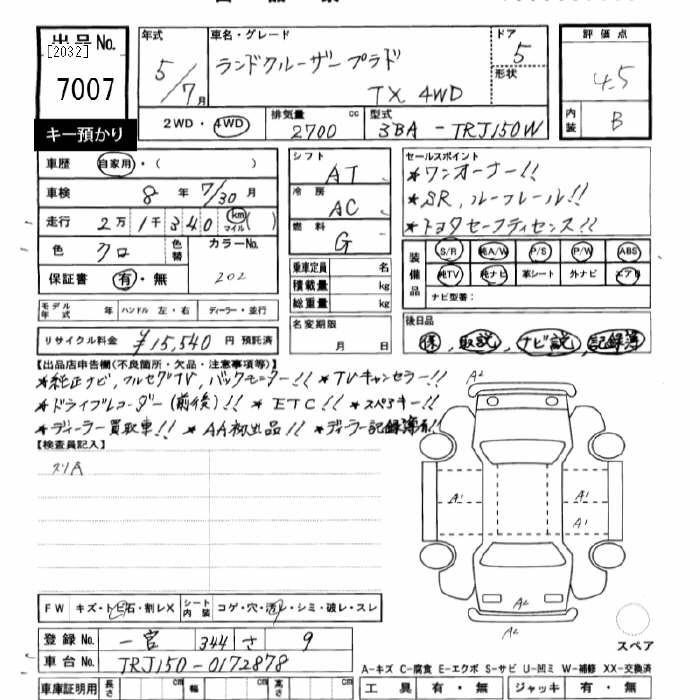 出品No.
[2032]
7007
キー預かり
年式
5/7月
車名・グレード
ランドクルーザープラド
TX 4WD
ドア
5
形状
評価点
4.5
内装
B
2WD・4WD
排気量
2700 cc
型式
3BA-TRJ150W
車歴
自家用・( )
車検
8年7/30月
走行
2万1千340 km マイル( )
色
クロ
色替
カラーNo.
202
保証書
有・無
シフト
AT
冷房
AC
燃料
G
乗車定員 名
積載量 kg
総重量 kg
セールスポイント
*ワンオーナー!!
*SR,ルーフレール!!
*トヨタセーフティセンス!!
装備品
S/R 純A/W P/S P/W ABS
純TV 純ナビ 革シート 外ナビ エアB
ナビ型番:
モデル年式 年 ハンドル 左・右 ディーラー・並行
リサイクル料金 ¥15,540 円 預託済
名変期限
月 日
後日品
保,取説,ナビ説,記録簿
【出品店申告欄(不良箇所・欠品・注意事項等)】
*純正ナビ,フルセグTV,バックモニター!! *TVキャンセラー!!
*ドライブレコーダー(前後)!! *ETC!! *スペアキー!!
*ディーラー買取車!! *AA初出品!! *ディーラー記録簿有!!
【検査員記入】
A2
A1
A1
A1
A2
A2
スペア
FW キズ・トビ石・割レX シート内装 コゲ・穴・汚レ・シミ・破レ・スレ
登録No. 一宮 344 さ 9
車台No. TRJ150-0172878
A-キズ C-腐食 E-エクボ S-サビ U-凹ミ W-補修 XX-交換済
車庫証明用 長さ cm 幅 cm 高さ cm
工具 有・無 ジャッキ 有・無